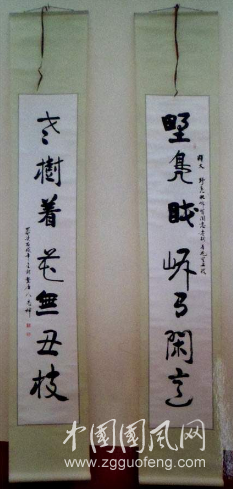 野鳧眠岸有閑意
老樹着花無丑枝
中國國風网
www.zgguofeng.com